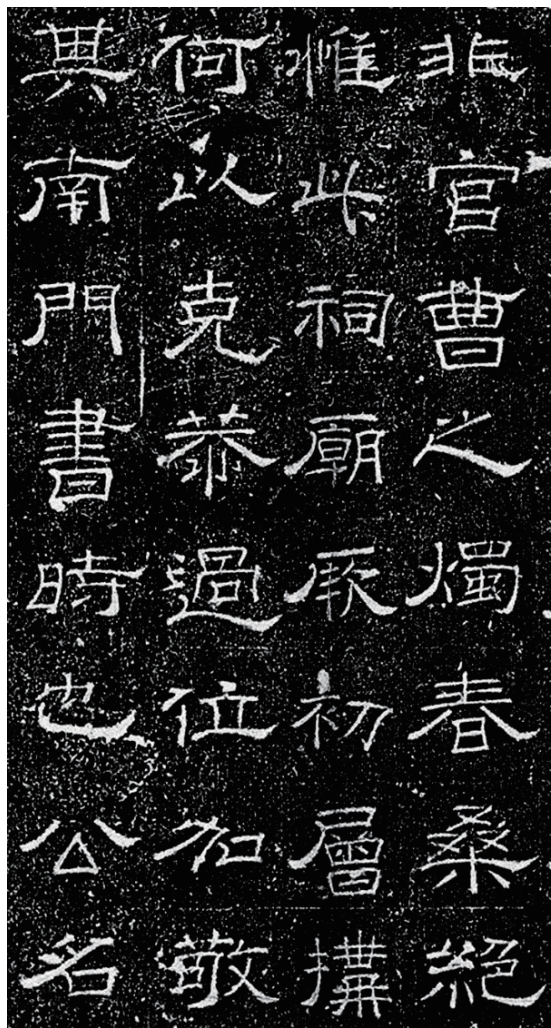 非官曹之燭春桑絕
惟此祠廟厥初層構
何以克恭過位加敬
異南門書時也公名